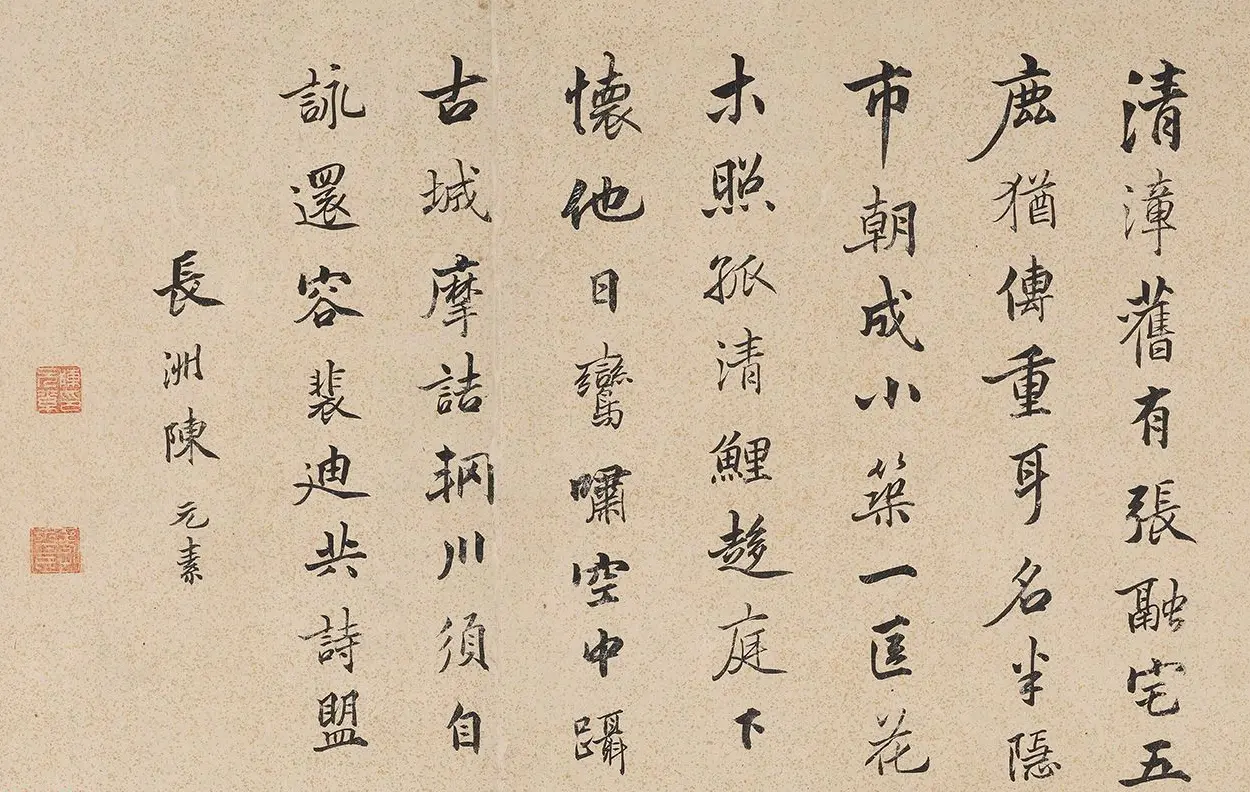 清漳舊有張融宅五
鹿猶傳重耳名半隱
市朝成小築一匡花
木照孤清鯉趍庭下
懷他日鸞嘯空中躡
古城摩詰輞川須自
詠還容裴迪共詩盟
長洲陳元素